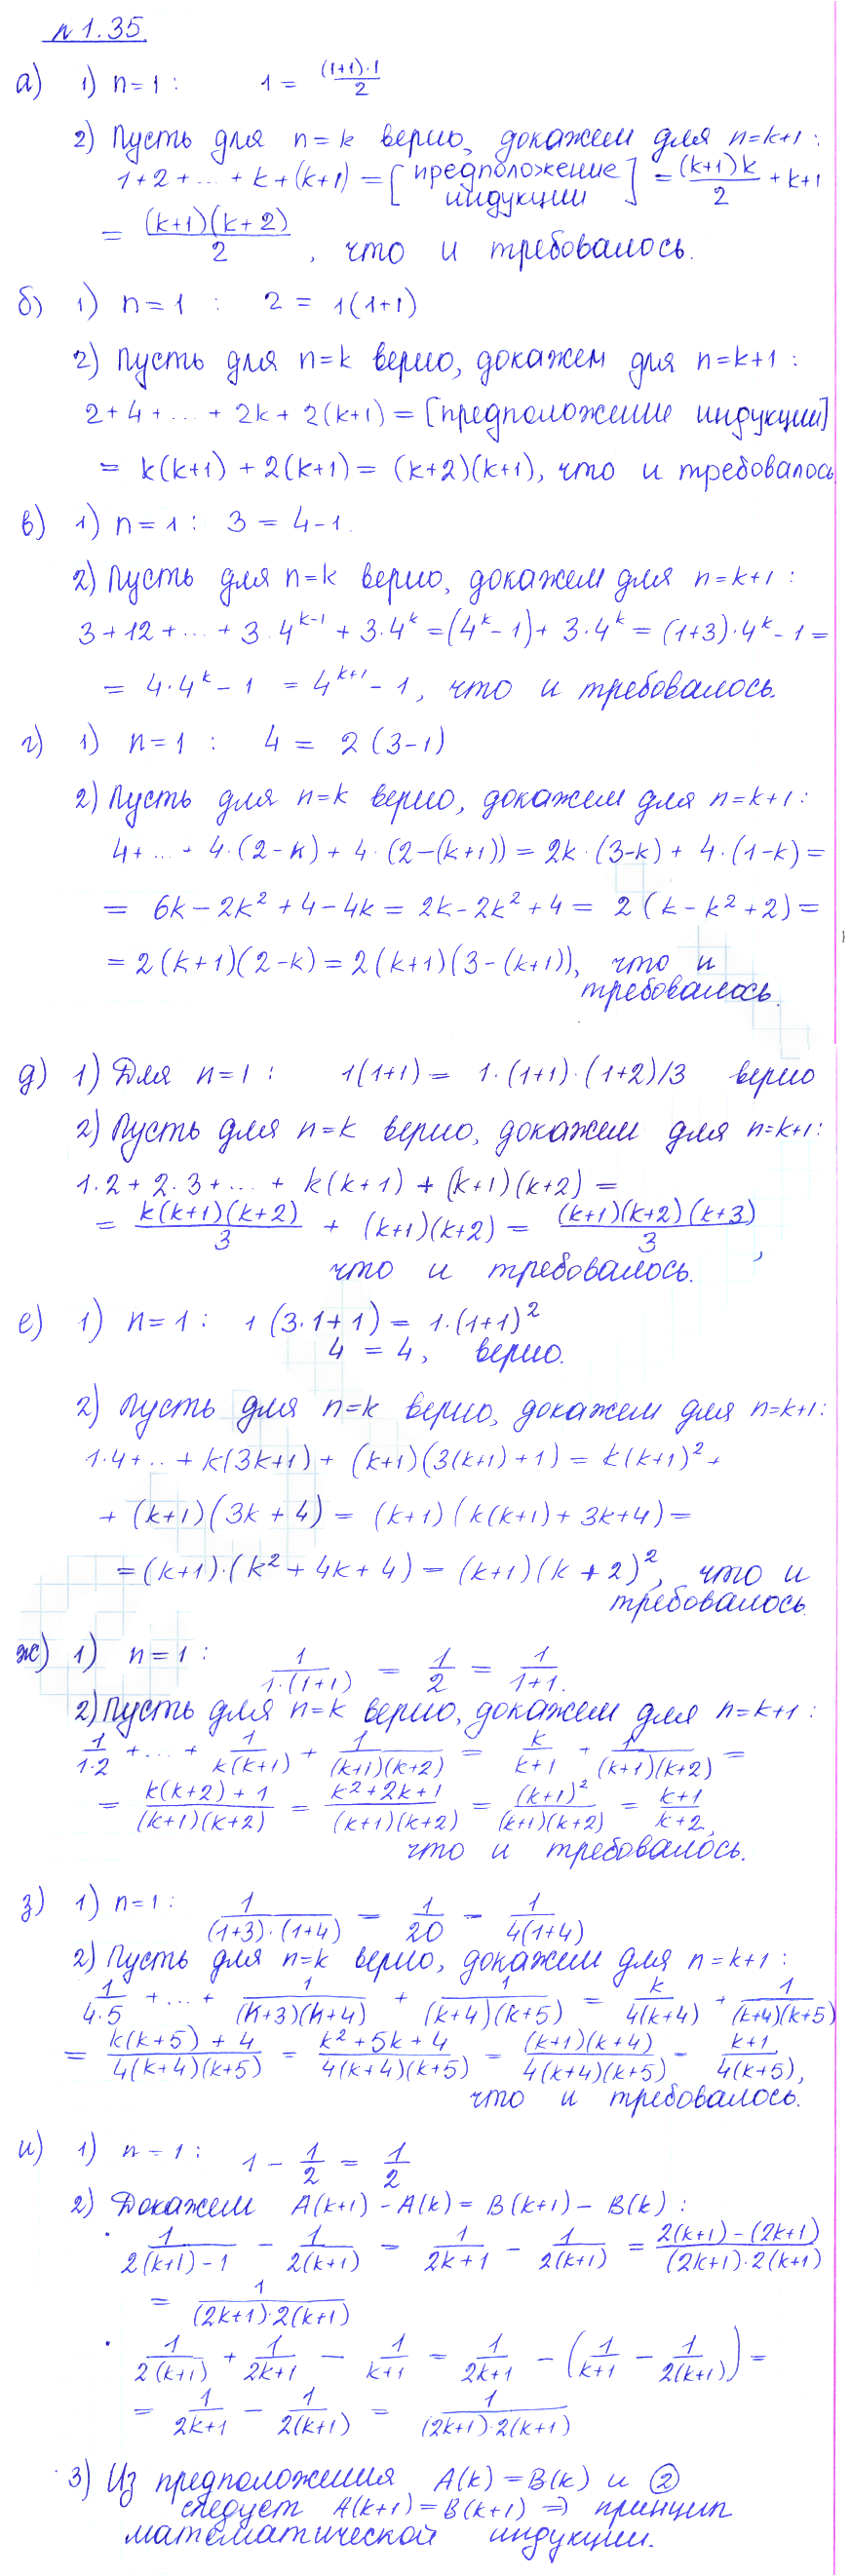 № 1.35
а) 1) n=1 : 1 = (1+1)·1/2
2) Пусть для n=k верно, докажем для n=k+1 :
1+2+...+k+(k+1) = [предположение индукции] = (k+1)k/2 + k+1
= (k+1)(k+2)/2 , что и требовалось.
б) 1) n=1 : 2 = 1(1+1)
2) Пусть для n=k верно, докажем для n=k+1 :
2+4+...+2k+2(k+1) = [предположение индукции]
= k(k+1) + 2(k+1) = (k+2)(k+1), что и требовалось
в) 1) n=1 : 3 = 4-1.
2) Пусть для n=k верно, докажем для n=k+1 :
3+12+...+3·4^{k-1} + 3·4^k = (4^k-1) + 3·4^k = (1+3)·4^k - 1 =
= 4·4^k - 1 = 4^{k+1} - 1, что и требовалось.
г) 1) n=1 : 4 = 2(3-1)
2) Пусть для n=k верно, докажем для n=k+1 :
4+...+4·(2-k)+4·(2-(k+1)) = 2k·(3-k) + 4·(1-k) =
= 6k - 2k² + 4 - 4k = 2k - 2k² + 4 = 2(k - k² + 2) =
= 2(k+1)(2-k) = 2(k+1)(3-(k+1)), что и
требовалось.
д) 1) Для n=1 : 1(1+1) = 1·(1+1)·(1+2)/3 верно
2) Пусть для n=k верно, докажем для n=k+1:
1·2+2·3+...+k(k+1)+(k+1)(k+2) =
= k(k+1)(k+2)/3 + (k+1)(k+2) = (k+1)(k+2)(k+3)/3 ,
что и требовалось.
е) 1) n=1 : 1(3·1+1) = 1·(1+1)²
4 = 4, верно.
2) Пусть для n=k верно, докажем для n=k+1:
1·4+...+k(3k+1)+(k+1)(3(k+1)+1) = k(k+1)² +
+ (k+1)(3k+4) = (k+1)(k(k+1)+3k+4) =
= (k+1)·(k²+4k+4) = (k+1)(k+2)², что и
требовалось.
ж) 1) n=1 : 1/(1·(1+1)) = 1/2 = 1/(1+1).
2) Пусть для n=k верно, докажем для n=k+1 :
1/(1·2) +...+ 1/(k(k+1)) + 1/((k+1)(k+2)) = k/(k+1) + 1/((k+1)(k+2)) =
= (k(k+2)+1)/((k+1)(k+2)) = (k²+2k+1)/((k+1)(k+2)) = (k+1)²/((k+1)(k+2)) = (k+1)/(k+2),
что и требовалось.
з) 1) n=1 : 1/((1+3)·(1+4)) = 1/20 = 1/(4(1+4))
2) Пусть для n=k верно, докажем для n=k+1 :
1/(4·5) +...+ 1/((k+3)(k+4)) + 1/((k+4)(k+5)) = k/(4(k+4)) + 1/((k+4)(k+5))
= (k(k+5)+4)/(4(k+4)(k+5)) = (k²+5k+4)/(4(k+4)(k+5)) = (k+1)(k+4)/(4(k+4)(k+5)) = (k+1)/(4(k+5)),
что и требовалось.
и) 1) n=1 : 1 - 1/2 = 1/2
2) Докажем A(k+1) - A(k) = B(k+1) - B(k) :
· 1/(2(k+1)-1) - 1/(2(k+1)) = 1/(2k+1) - 1/(2(k+1)) = (2(k+1)-(2k+1))/((2k+1)·2(k+1))
= 1/((2k+1)·2(k+1))
· 1/(2(k+1)) + 1/(2k+1) - 1/(k+1) = 1/(2k+1) - (1/(k+1) - 1/(2(k+1))) =
= 1/(2k+1) - 1/(2(k+1)) = 1/((2k+1)·2(k+1))
3) Из предположения A(k)=B(k) и ②
следует A(k+1)=B(k+1) ⇒ принцип
математической индукции.